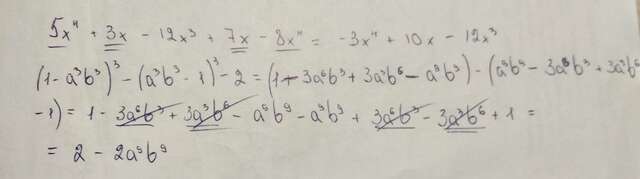 5x⁴ + 3x - 12x³ + 7x - 8x⁴ = -3x⁴ + 10x - 12x³
(1 - a³b³)³ - (a³b³ - 1)³ - 2 = (1 - 3a⁶b³ + 3a³b⁶ - a⁹b⁹) - (a⁹b⁹ - 3a⁶b³ + 3a³b⁶
- 1) = 1 - 3a⁶b³ + 3a³b⁶ - a⁹b⁹ - a⁹b⁹ + 3a⁶b³ - 3a³b⁶ + 1 =
= 2 - 2a⁹b⁹